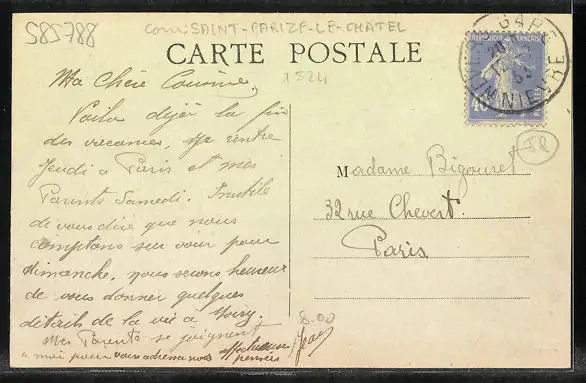 585788
SAINT-PARIZE-LE-CHATEL
CARTE POSTALE
1524
RÉPUBLIQUE FRANÇAISE
40
GARE
NIEVRE
JR
Ma Chère Cousine,
Voilà déjà la fin
des vacances, je rentre
Jeudi à Paris et mes
Parents Samedi. Inutile
de vous dire que nous
comptons sur vous pour
dimanche, nous serons heureux
de vous donner quelques
détails de la vie à
Mes Parents se joignent
à moi pour vous adresser nos affectueuses
pensées
Jean
8.00
Madame Bigouret
32 rue Chevert.
Paris